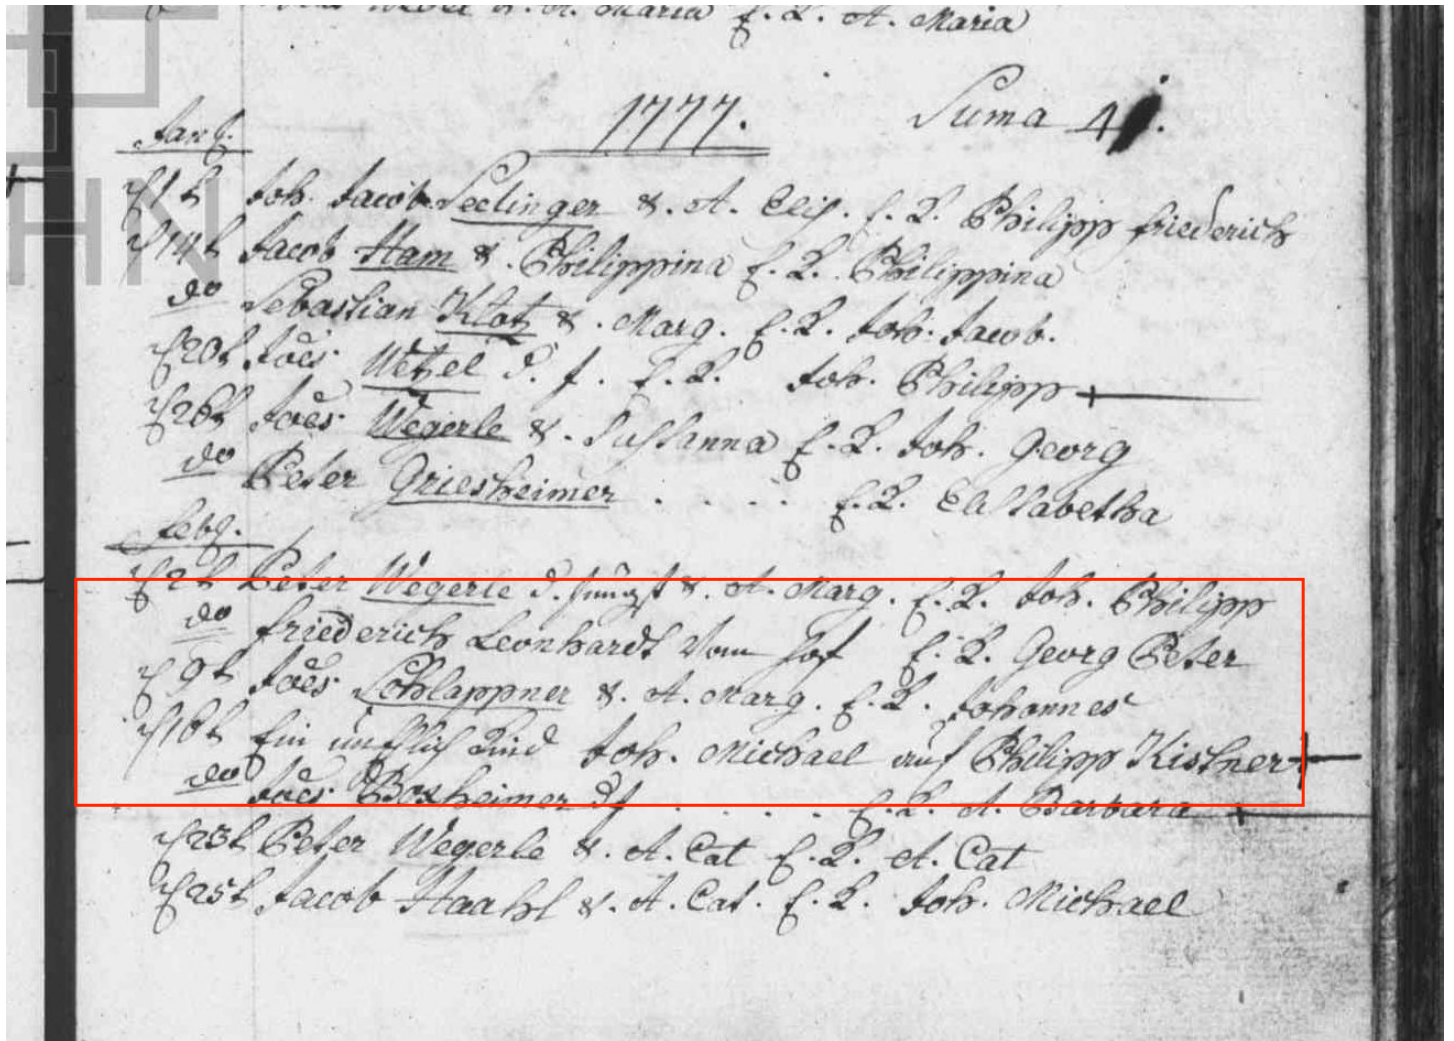 A. Maria E. K. A. Maria
1777. Suma 4
Jan.
1t Joh. Jacob Seelinger &. A. Elis. E. K. Philipp friederich
14t Jacob Ham &. Philippina E. K. Philippina
do Sebastian Klotz &. Marg. E. K. Joh. Jacob.
20t Joes. Wetzel d. J. E. K. Joh. Philipp
26t Joes. Wegerle &. Sussanna E. K. Joh. Georg
do Peter Griesheimer . . . . E. K. Elissabetha
febr.
2t Peter Wegerle d. Jüngst &. A. Marg. E. K. Joh. Philipp
do friederich Leonhardt vom Hof E. K. Georg Peter
9t Joes. Schlappner &. A. Marg. E. K. Johannes
16t Ein unehlich Kind Joh. Michael auf Philipp Kistner
do Joes. Boxheimer . . . . E. K. A. Barbara
23t Peter Wegerle &. A. Cat E. K. A. Cat
25t Jacob Haahl &. A. Cat. E. K. Joh. Michael
HN